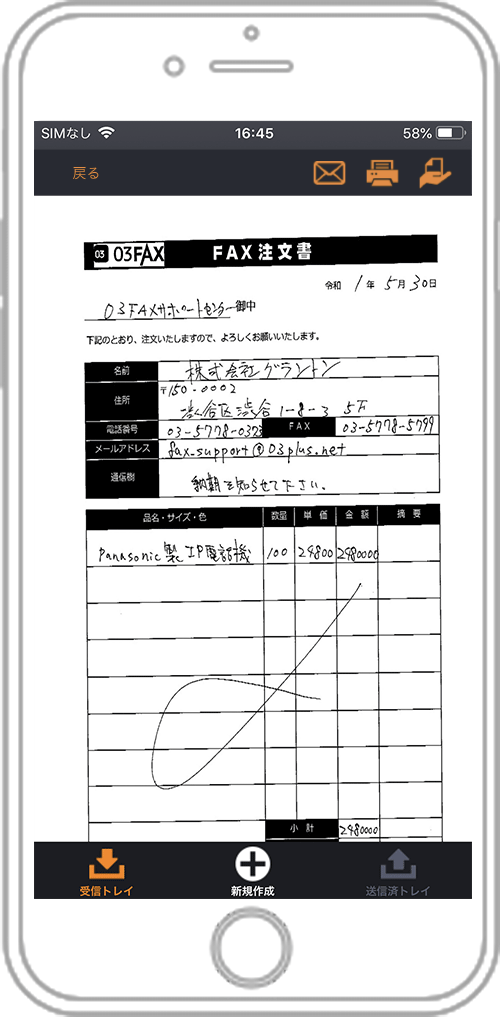 SIMなし 16:45 58%
戻る
03 03FAX FAX注文書
令和 1年 5月30日
03FAXサポートセンター 御中
下記のとおり、注文いたしますので、よろしくお願いいたします。
名前 株式会社グラントン
住所 〒150-0002
渋谷区渋谷 1-8-3 5F
電話番号 03-5778-0323 FAX 03-5778-5799
メールアドレス fax-support@03plus.net
通信欄 納期を知らせて下さい。
品名・サイズ・色 数量 単価 金額 摘要
Panasonic製 IP電話機 100 24800 2480000
小計 2480000
受信トレイ 新規作成 送信済トレイ